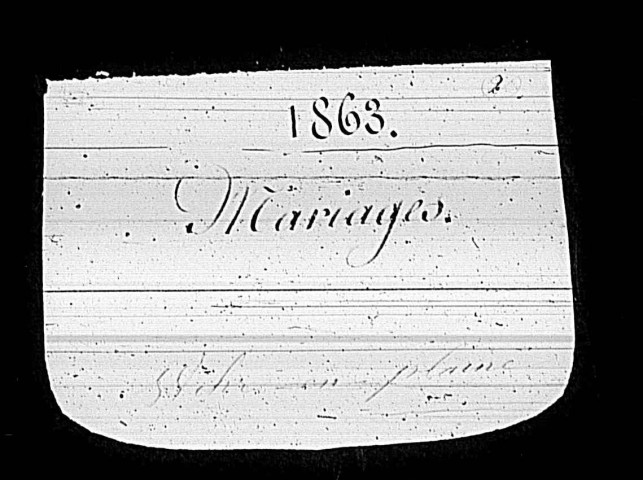 1863.
Mariages.
en plaine